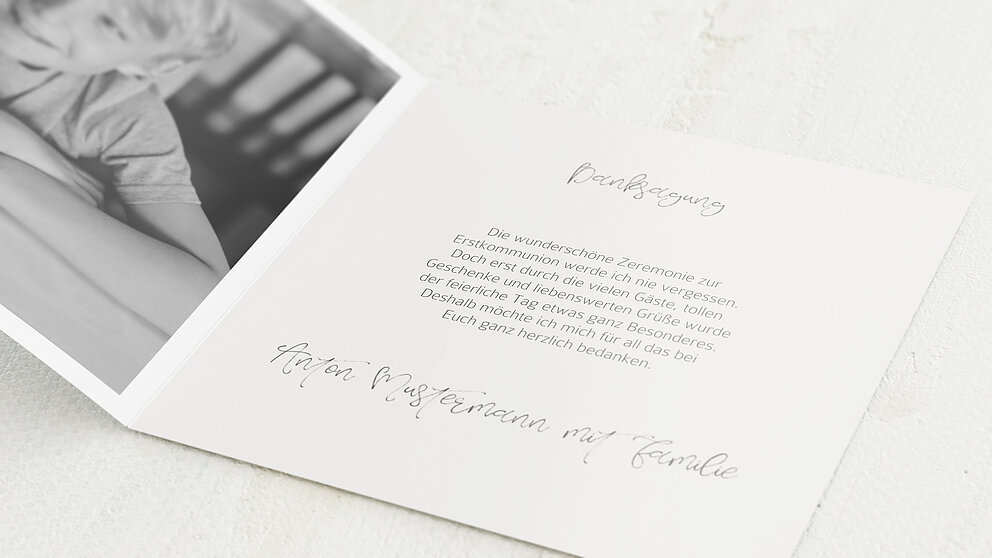 Danksagung
Die wunderschöne Zeremonie zur
Erstkommunion werde ich nie vergessen.
Doch erst durch die vielen Gäste, tollen
Geschenke und liebenswerten Grüße wurde
der feierliche Tag etwas ganz Besonderes.
Deshalb möchte ich mich für all das bei
Euch ganz herzlich bedanken.
Anton Mustermann mit Familie